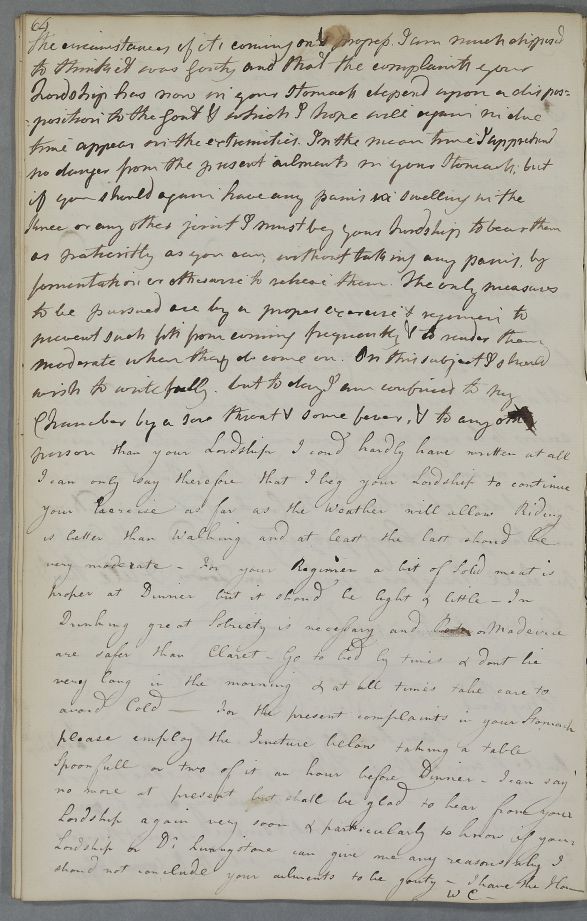 64
the circumstances of its coming on & progress. I am much disposed
to think it was gouty and that the complaints your
Lordship has now in your Stomach depend upon a dispos=
=position to the Gout & which I hope will again in due
time appear on the extremities. In the mean time I apprehend
no danger from the present ailments in your Stomach, but
if you should again have any pains or swelling in the
knee or any other joint I must beg your Lordship to bear them
as patiently as you can, without taking any pains, by
fomentation or otherwise to relieve them. The only measures
to be pursued are by a proper exercise & regimen to
prevent such fits from coming frequently & to render them
moderate when they do come on. On this subject I should
wish to write fully. but to day I am confined to my
Chamber by a sore throat & some fever, & to any other
person than your Lordship I coud hardly have written at all
I can only say therefore that I beg your Lordship to continue
your Exercise as far as the Weather will allow Riding
is better than Walking and at least the last should be
very moderate – For your Regimen a bit of Solid meat is
proper at Dinner but it should be light & little – In
Drinking great Sobriety is necessary and or Madeira
are safer than Claret – Go to bed by times & dont lie
very long in the morning & at all times take care to
avoid Cold — For the present complaints in your Stomach
please employ the Tincture below taking a table
Spoonfull or two of it an hour before Dinner – I can say
no more at present but shall be glad to hear from your
Lordship again very soon & particularly to know if your
Lordship or Dr Livingstone can give me any reasons why I
should not conclude your ailments to be gouty – I have the Hon
W C –